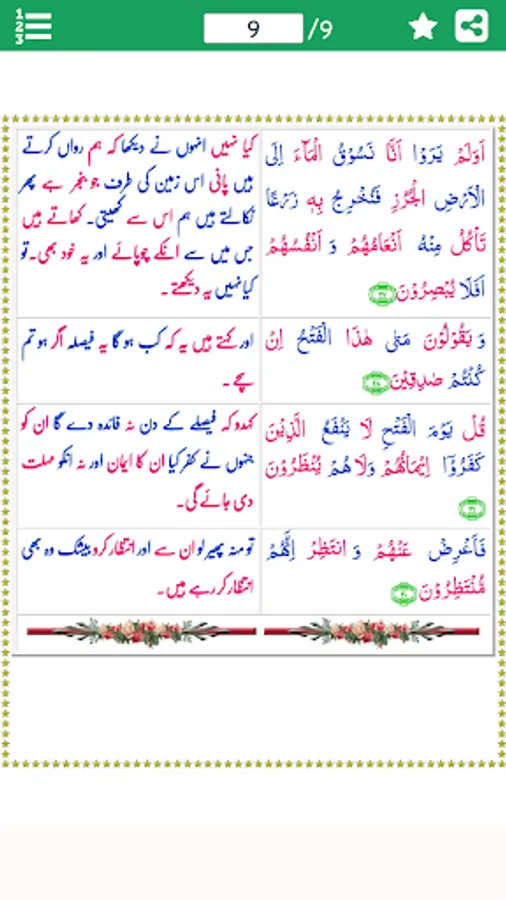 1
2
3
9 /9
اَوَلَمْ يَرَوْا اَنَّا نَسُوْقُ الْمَآءَ اِلَى
الْاَرْضِ الْجُرُزِ فَنُخْرِجُ بِهٖ زَرْعًا
تَاْكُلُ مِنْهُ اَنْعَامُهُمْ وَ اَنْفُسُهُمْ
اَفَلَا يُبْصِرُوْنَ ۲۷
کیا نہیں انہوں نے دیکھا کہ ہم رواں کرتے
ہیں پانی اس زمین کی طرف جو بنجر ہے پھر
نکالتے ہیں ہم اس سے کھیتی۔ کھاتے ہیں
جس میں سے انکے چوپائے اور یہ خود بھی۔ تو
کیا نہیں یہ دیکھتے۔
وَ يَقُوْلُوْنَ مَتٰى هٰذَا الْفَتْحُ اِنْ
كُنْتُمْ صٰدِقِيْنَ ۲۸
اور کہتے ہیں یہ کہ کب ہو گا یہ فیصلہ اگر ہو تم
سچے۔
قُلْ يَوْمَ الْفَتْحِ لَا يَنْفَعُ الَّذِيْنَ
كَفَرُوْۤا اِيْمَانُهُمْ وَلَا هُمْ يُنْظَرُوْنَ
۲۹
کہدو کہ فیصلے کے دن نہ فائدہ دے گا ان کو
جنہوں نے کفر کیا ان کا ایمان اور نہ انکو مہلت
دی جائے گی۔
فَاَعْرِضْ عَنْهُمْ وَ انْتَظِرْ اِنَّهُمْ
مُّنْتَظِرُوْنَ ۳۰
تو منہ پھیر لو ان سے اور انتظار کرو بیشک وہ بھی
انتظار کر رہے ہیں۔